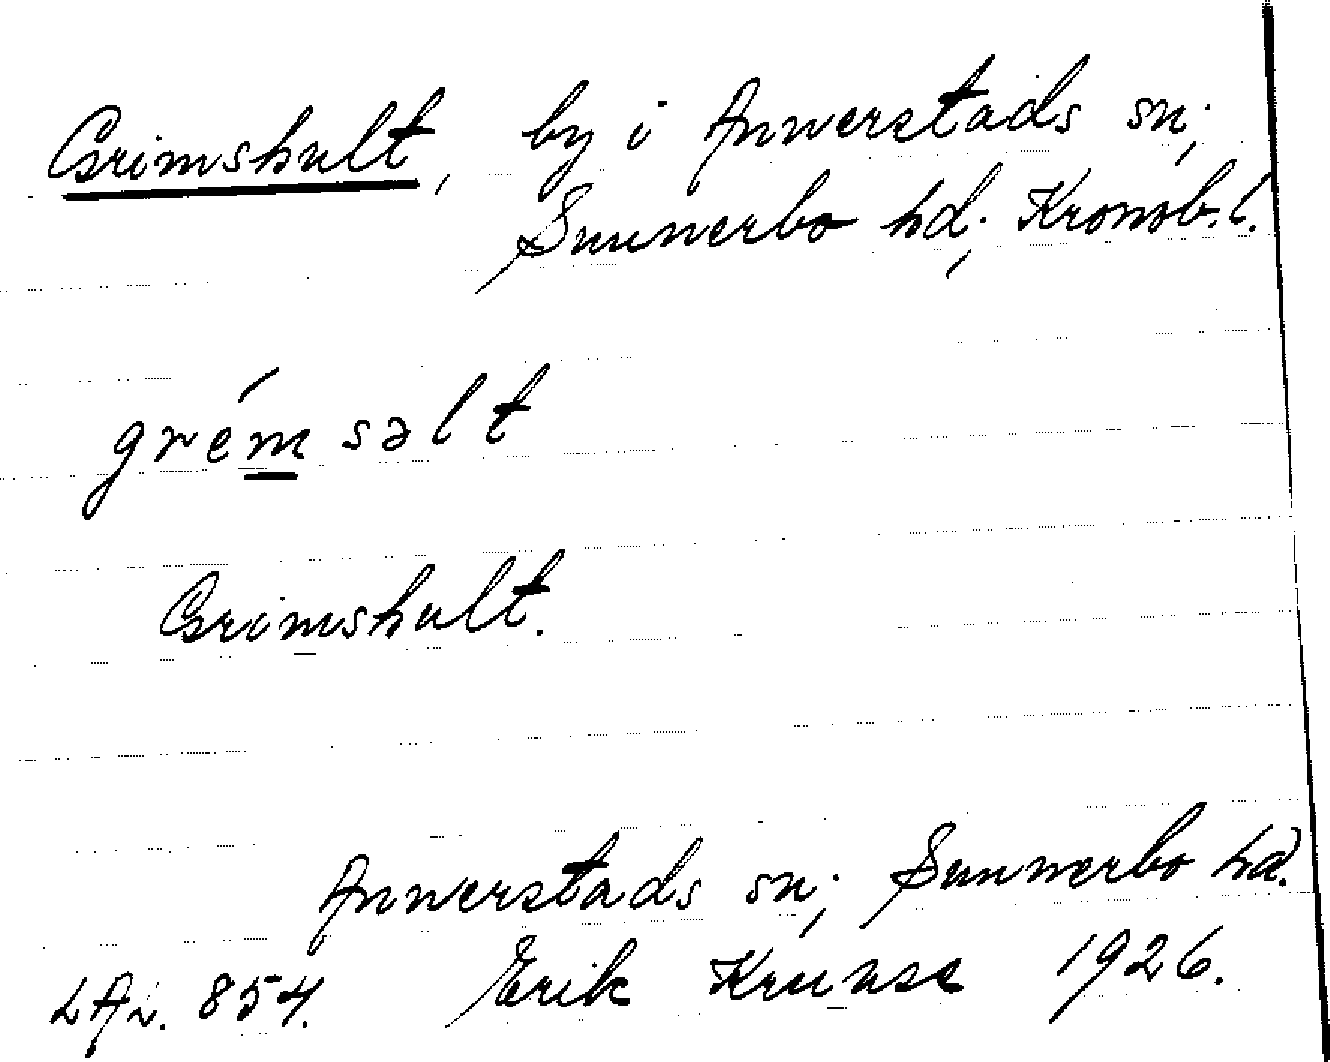 Grimshult, by i Annerstads sn;
Sunnerbo hd; Kronob. l.
grém səlt
Grimshult.
Annerstads sn; Sunnerbo hd.
LAL. 854. Erik Kruuse 1926.